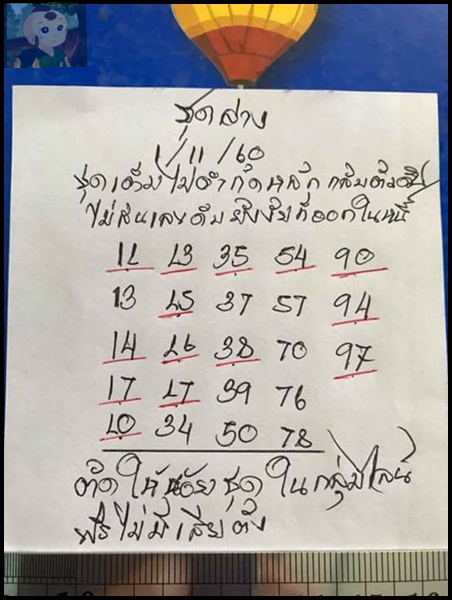 ชุดล่าง
1/11/60
ชุดเต็มไม่จำกัดหลัก กลับด้วย
ไม่สนเลขดับ ยังงัยก็ออกในนี้
12 23 35 54 90
13 25 37 57 94
14 26 38 70 97
17 27 39 76
20 34 50 78
ตัดให้น้อยชุดในกลุ่มไลน์
ฟรีไม่มีเสียตัง